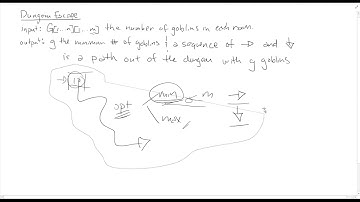 Dungeon Escape
input: G[1...n][1...m] the number of goblins in each room.
output: g the minimum # of goblins & a sequence of → and ↓
is a path out of the dungeon with g goblins
opt
min
max
m